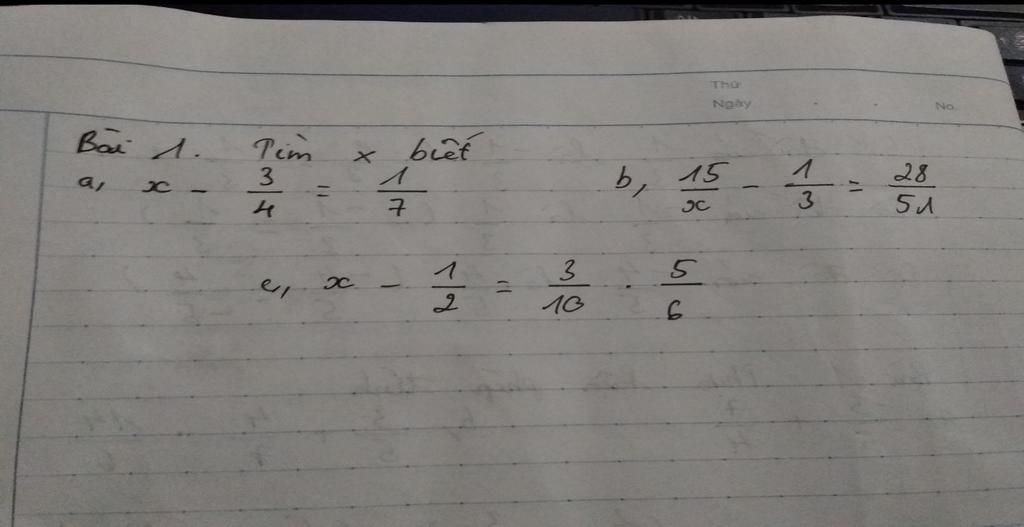 Thứ
Ngày . . No.
Bài 1. Tìm x biết
a, x - 3/4 = 1/7 b, 15/x - 1/3 = 28/51
c, x - 1/2 = 3/10 . 5/6